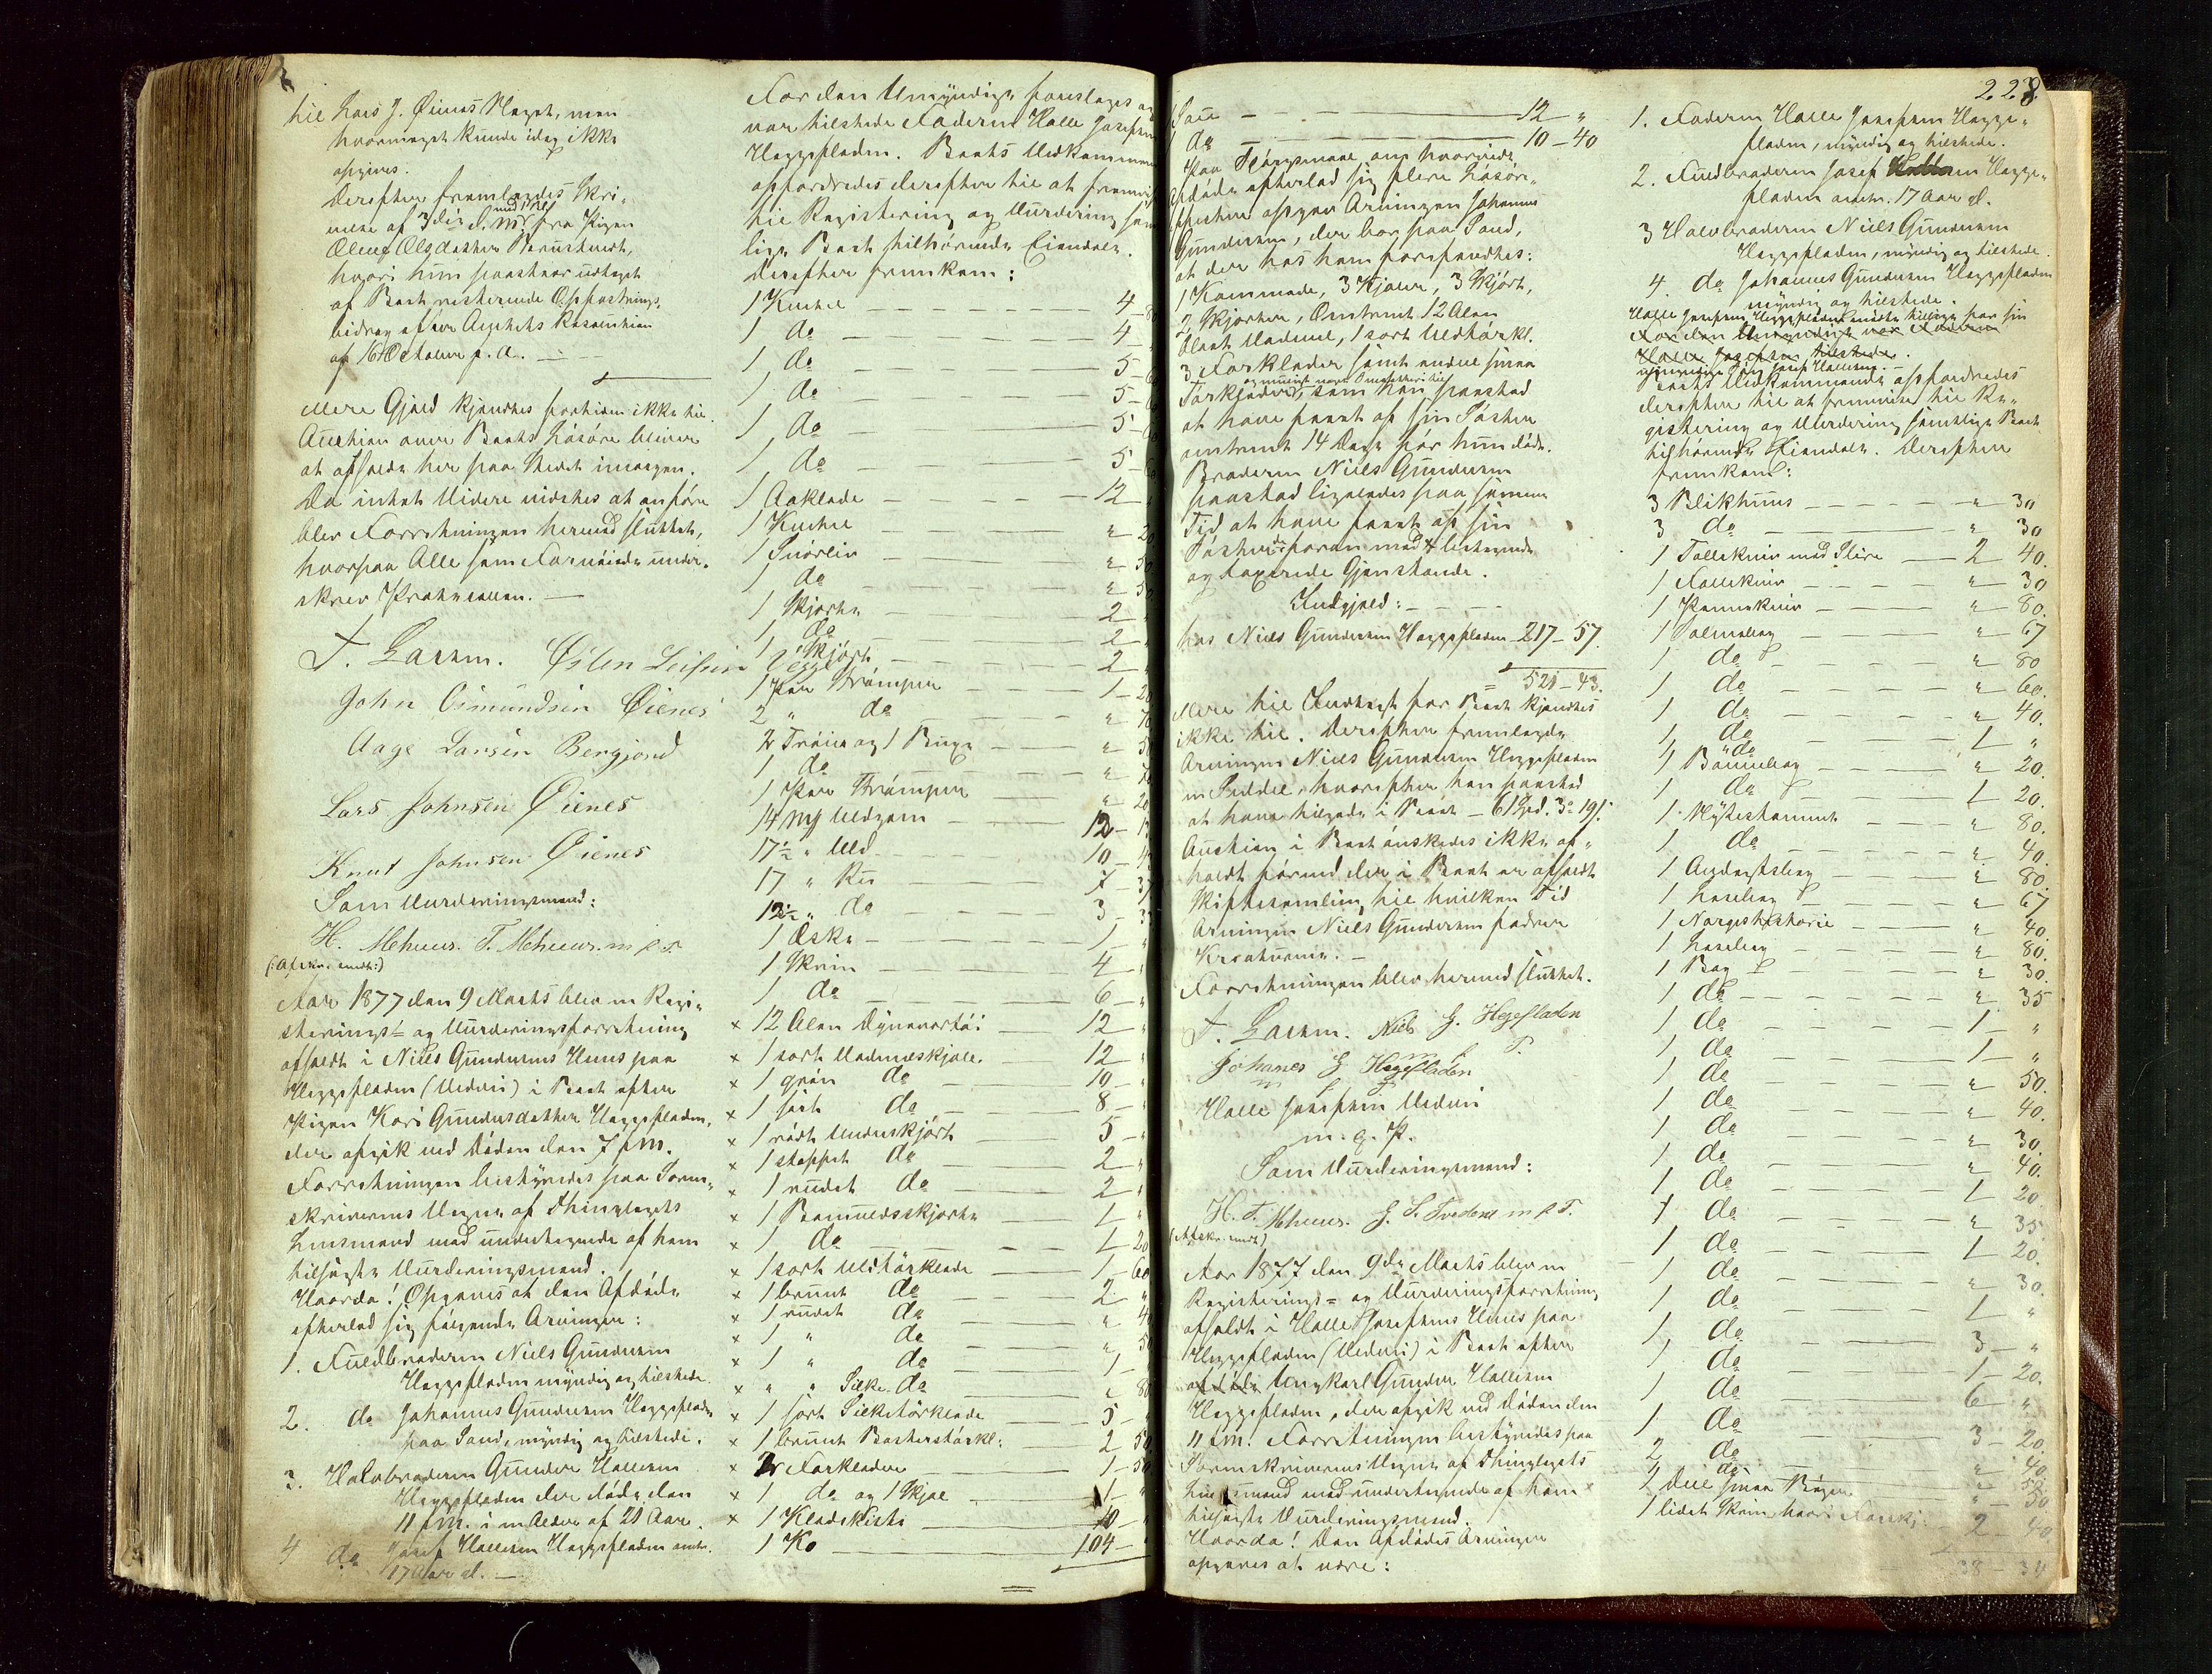 til Lars J. Øienæs Meget, men
hvormeget kunde idag ikke
opgives.
Derefter fremlagdes Skri-
velse af 3die d. M. fra Pigen
med 1 Bil.
Olene Olsdatter
hvori hun paastaar udtaget
af Boet resterende Opfostrings-
bidrag efter Amtets Resolution
af 16 Oktober f. A. —
Mere Gjæld kjendtes fortiden ikke til.
Auktion over Boets Løsøre bliver
at afholde her paa Stedet imorgen.
Da intet Videre vidstes at anføre
blev Forretningen hermed sluttet,
hvorpaa Alle som Fornøiede under-
skrev Protocollen. —
T. Larsen. Østen Leifsen Vegge
John Osmundsen Øienes
Aage Larsen Bergjord
Lars Johnsen Øienes
Knut Johnsen Øienes
Som Vurderingsmænd:
H. Mehuus. T. Mehuus. m. p. P.
(: Afskr. medd :)
Aar 1877 den 9 Marts blev en Regi-
sterings- og Vurderingsforretning
afholdt i Niels Gundersens Huus paa
Heggefladen (Ulveri) i Boet efter
Pigen Kari Gundersdatter Heggefladen,
der afgik ved Døden den 7 f. M.
Forretningen bestyredes paa Soren-
skriverens Vegne af Thinglagets
Lensmand med undertegnede af ham
tilsagte Vurderingsmænd.
Hvorda! Opgaves at den Afdøde
efterlod sig følgende Arvinger:
1. Fuldbroderen Niels Gundersen
Heggefladen myndig og tilstede.
2. do Johannes Gundersen Heggefladen
paa Sand, myndig og tilstede.
3. Halvbroderen Gunder Hallesen
Heggefladen der døde den
11 f. M. i en Alder af 21 Aar.
4 do Josef Hallesen Heggefladen omtr.
17 Aar gl. —
For den Umyndige foreslages og
var tilstede Faderen Halle Josefsen
Heggefladen. Boets Vedkommende
opfordredes derefter til at fremvise
til Registering og Vurdering samt-
lige Boet tilhørende Eiendele.
Derefter fremkom:
1 Kuchel — 4 - 80
1 do — 4 - "
1 do — 5 - 60
1 do — 5 - 60
1 do — 5 - 60
1 do — 5 - 60
1 Aaklæde — 12 - "
1 Kuchel — " 20
1 Snørliv — " 50
1 do — " 50
1 Skjorte — 2 - "
1 do — 2 - "
1 Skjørt — 2 - "
1 Par Strømper — 1 - 20
2 " do — " 70
2 Trøier og 1 Buxe — " 50
1 do — " 70
1 Par Strømper — " 20
14 Mk Uldgarn — 12 -
17½ " Uld — 10 -
17 " Ru — 7 - 37
12½ " do — 3 - 33
1 Æske — 1 - "
1 Skrin — 4 - "
1 do — 6 - "
× 12 Alen Dynevartøi — 12 - "
× 1 sort Vadmelskjole — 12 - "
× 1 grøn do — 10 - "
× 1 sort do — 8 - "
× 1 rødt Underskjørt — 5 - "
× 1 stoppet do — 2 - "
× 1 rudet do — 2 - "
× 1 Bomuldsskjorte — 1 - "
× 1 do — 1 - 20
× 1 sort Uldtørklæde — 1 - 60
× 1 brunt do — 2 - "
× 1 rudet do — " 40
× 1 " do — " 50
× 1 " do — 1 - "
× " " Silke do — " 80
× 1 sort Silketørklæde — 5 - "
× 1 brunt — 2 - 50
× 2 Forklæder — 1 - 50
× 1 do og 1 Skjæl — 1 - "
× 1 Klædekiste — 10 - "
1 Ko — 104 - "
1 Sau — 12 "
1 do — 10 - 40
Paa Spørgsmaal om hvorvidt
Afdøde efterlod sig flere Løsøre-
effekter opgav Arvingen Johannes
Gundersen, der bor paa Sand,
at der hos ham forefandtes:
1 Kommode, 3 Kjoler, 3 Skjørt,
2 Skjorter, Omtrent 12 Alen
blaat Vadmel, 1 sort Uldtørkl.
3 Forklæder samt endel smaa
og muligt mere Smaatteri til
Tørklæder, som han paastod
at have faaet af sin Søster
omtrent 14 Dage før hun døde.
Broderen Niels Gundersen
paastod ligeledes paa samme
Tid at have faaet af sin
Søster de foran med × betegnede
og taxerede Gjenstande.
Indgjæld: —
hos Niels Gundersen Heggefladen — 217 - 57.
= 521 - 43.
Mere til Indtægt for Boet kjendtes
ikke til. Derefter fremlagde
Arvingen Niels Gundersen Heggefladen
en Seddel, hvorefter han paastod
at have tilgode i Boet — 61 Spd. 3 - 19 s.
Auction i Boet ønskedes ikke af-
holdt førend der i Boet er afholdt
Skiftesamling, til hvilken Tid
Arvingen Niels Gundersen fodrer
Kreaturerne. —
Forretningen blev hermed sluttet.
T. Larsen. Niels G. Hegefladen
Johanes G Hegefladen
m. f. P.
Halle Josefsen Ulveri
m. p. P.
Som Vurderingsmænd:
H. T. Mehuus. J. S. Tvedene m. p. P.
(Afskr. medd)
Aar 1877 den 9de Marts blev en
Registerings- og Vurderingsforretning
afholdt i Halle Josefsens Huus paa
Heggefladen (Ulveri) i Boet efter
afdøde Ungkarl Gunder Hallesen
Heggefladen, der afgik ved Døden den
11 f. M. Forretningen bestyredes paa
Sorenskriverens Vegne af Thinglagets
Lensmand med undertegnede af ham
tilsagte Vurderingsmænd.
Hvorda! Den Afdødes Arvinger
opgaves at være:
228.
1. Faderen Halle Josefsen Hegge-
fladen, myndig og tilstede.
2. Fuldbroderen Josef Hallesen Hegge-
fladen omtr. 17 Aar gl.
3 Halvbroderen Niels Gundersen
Heggefladen, myndig og tilstede.
4. do Johannes Gundersen Heggefladen
myndig og tilstede.
Halle Josefsen Heggefladen mødte tillige for sin
For den Umyndige var Faderen
Halle Josefsen tilstede.
umyndige Søn Josef Hallesen. —
Boets Vedkommende opfordredes
derefter til at fremvise til Re-
gistering og Vurdering samtlige Boet
tilhørende Eiendele. Derefter
fremkom:
3 Blikkruus — " 30
3 do — " 30
1 Tollekniv med Slire — 2 40.
1 Follekniv — " 30
1 Pennekniv — " 80.
1 Salmebog — " 67
1 do — " 80
1 do — " 60.
1 do — " 40.
1 do — 1 "
1 Bønnebog — " 20.
1 do — 1 20.
1 Nytestament — " 80.
1 do — " 40.
1 Andagtsbog — " 80.
1 Læsebog — " 67
1 Norgeshistorie — " 40.
1 Læsebog — " 80.
1 Bog — " 30.
1 do — " 35
1 do — 1 - "
1 do — 1 - "
1 do — " 50.
1 do — " 40.
1 do — " 30.
1 do — " 40.
1 do — 1 20.
1 do — " 35
1 do — 1 20.
1 do — " 30.
1 do — 1 "
1 do — 3 - "
1 do — 1 - 20.
1 do — 6 - "
1 do — 3 - 20.
2 do — " 40.
1 Deel smaa Bøger — " 50
1 lidet Skrin hvori Forskj. — 2 - 40.
38 - 34